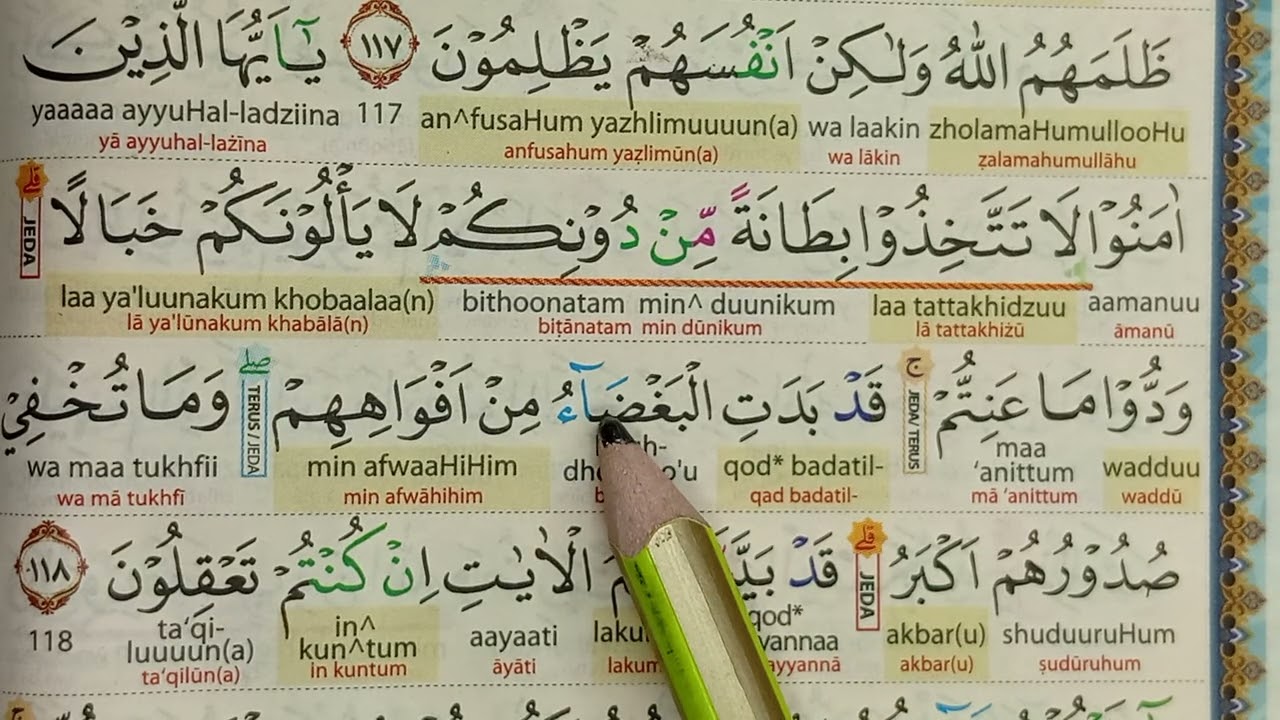 ظَلَمَهُمُ اللّٰهُ وَلٰكِنْ اَنْفُسَهُمْ يَظْلِمُوْنَ ١١٧ يٰٓاَيُّهَا الَّذِيْنَ
zholamaHumullooHu wa laakin an^fusaHum yazhlimuuuun(a) 117 yaaaaa ayyuHal-ladziina
ẓalamahumullāhu wa lākin anfusahum yaẓlimūn(a) yā ayyuhal-lażīna
اٰمَنُوْا لَا تَتَّخِذُوْا بِطَانَةً مِّنْ دُوْنِكُمْ لَا يَأْلُوْنَكُمْ خَبَالًا ۗ JEDA
aamanuu laa tattakhidzuu bithoonatam min^ duunikum laa ya'luunakum khobaalaa(n)
āmanū lā tattakhiżū biṭānatam min dūnikum lā ya'lūnakum khabālā(n)
وَدُّوْا مَا عَنِتُّمْ ۚ JEDA/ TERUS قَدْ بَدَتِ الْبَغْضَاۤءُ مِنْ اَفْوَاهِهِمْ ۖ TERUS / JEDA وَمَا تُخْفِيْ
wadduu maa ‘anittum qod* badatil- min afwaaHiHim wa maa tukhfii
waddū mā ‘anittum qad badatil- min afwāhihim wa mā tukhfī
صُدُوْرُهُمْ اَكْبَرُ ۗ JEDA قَدْ الْاٰيٰتِ اِنْ كُنْتُمْ تَعْقِلُوْنَ ١١٨
shuduuruHum akbar(u) qod* aayaati in^ kun^tum ta‘qi-luuuun(a) 118
ṣudūruhum akbar(u) āyāti in kuntum ta‘qilūn(a)